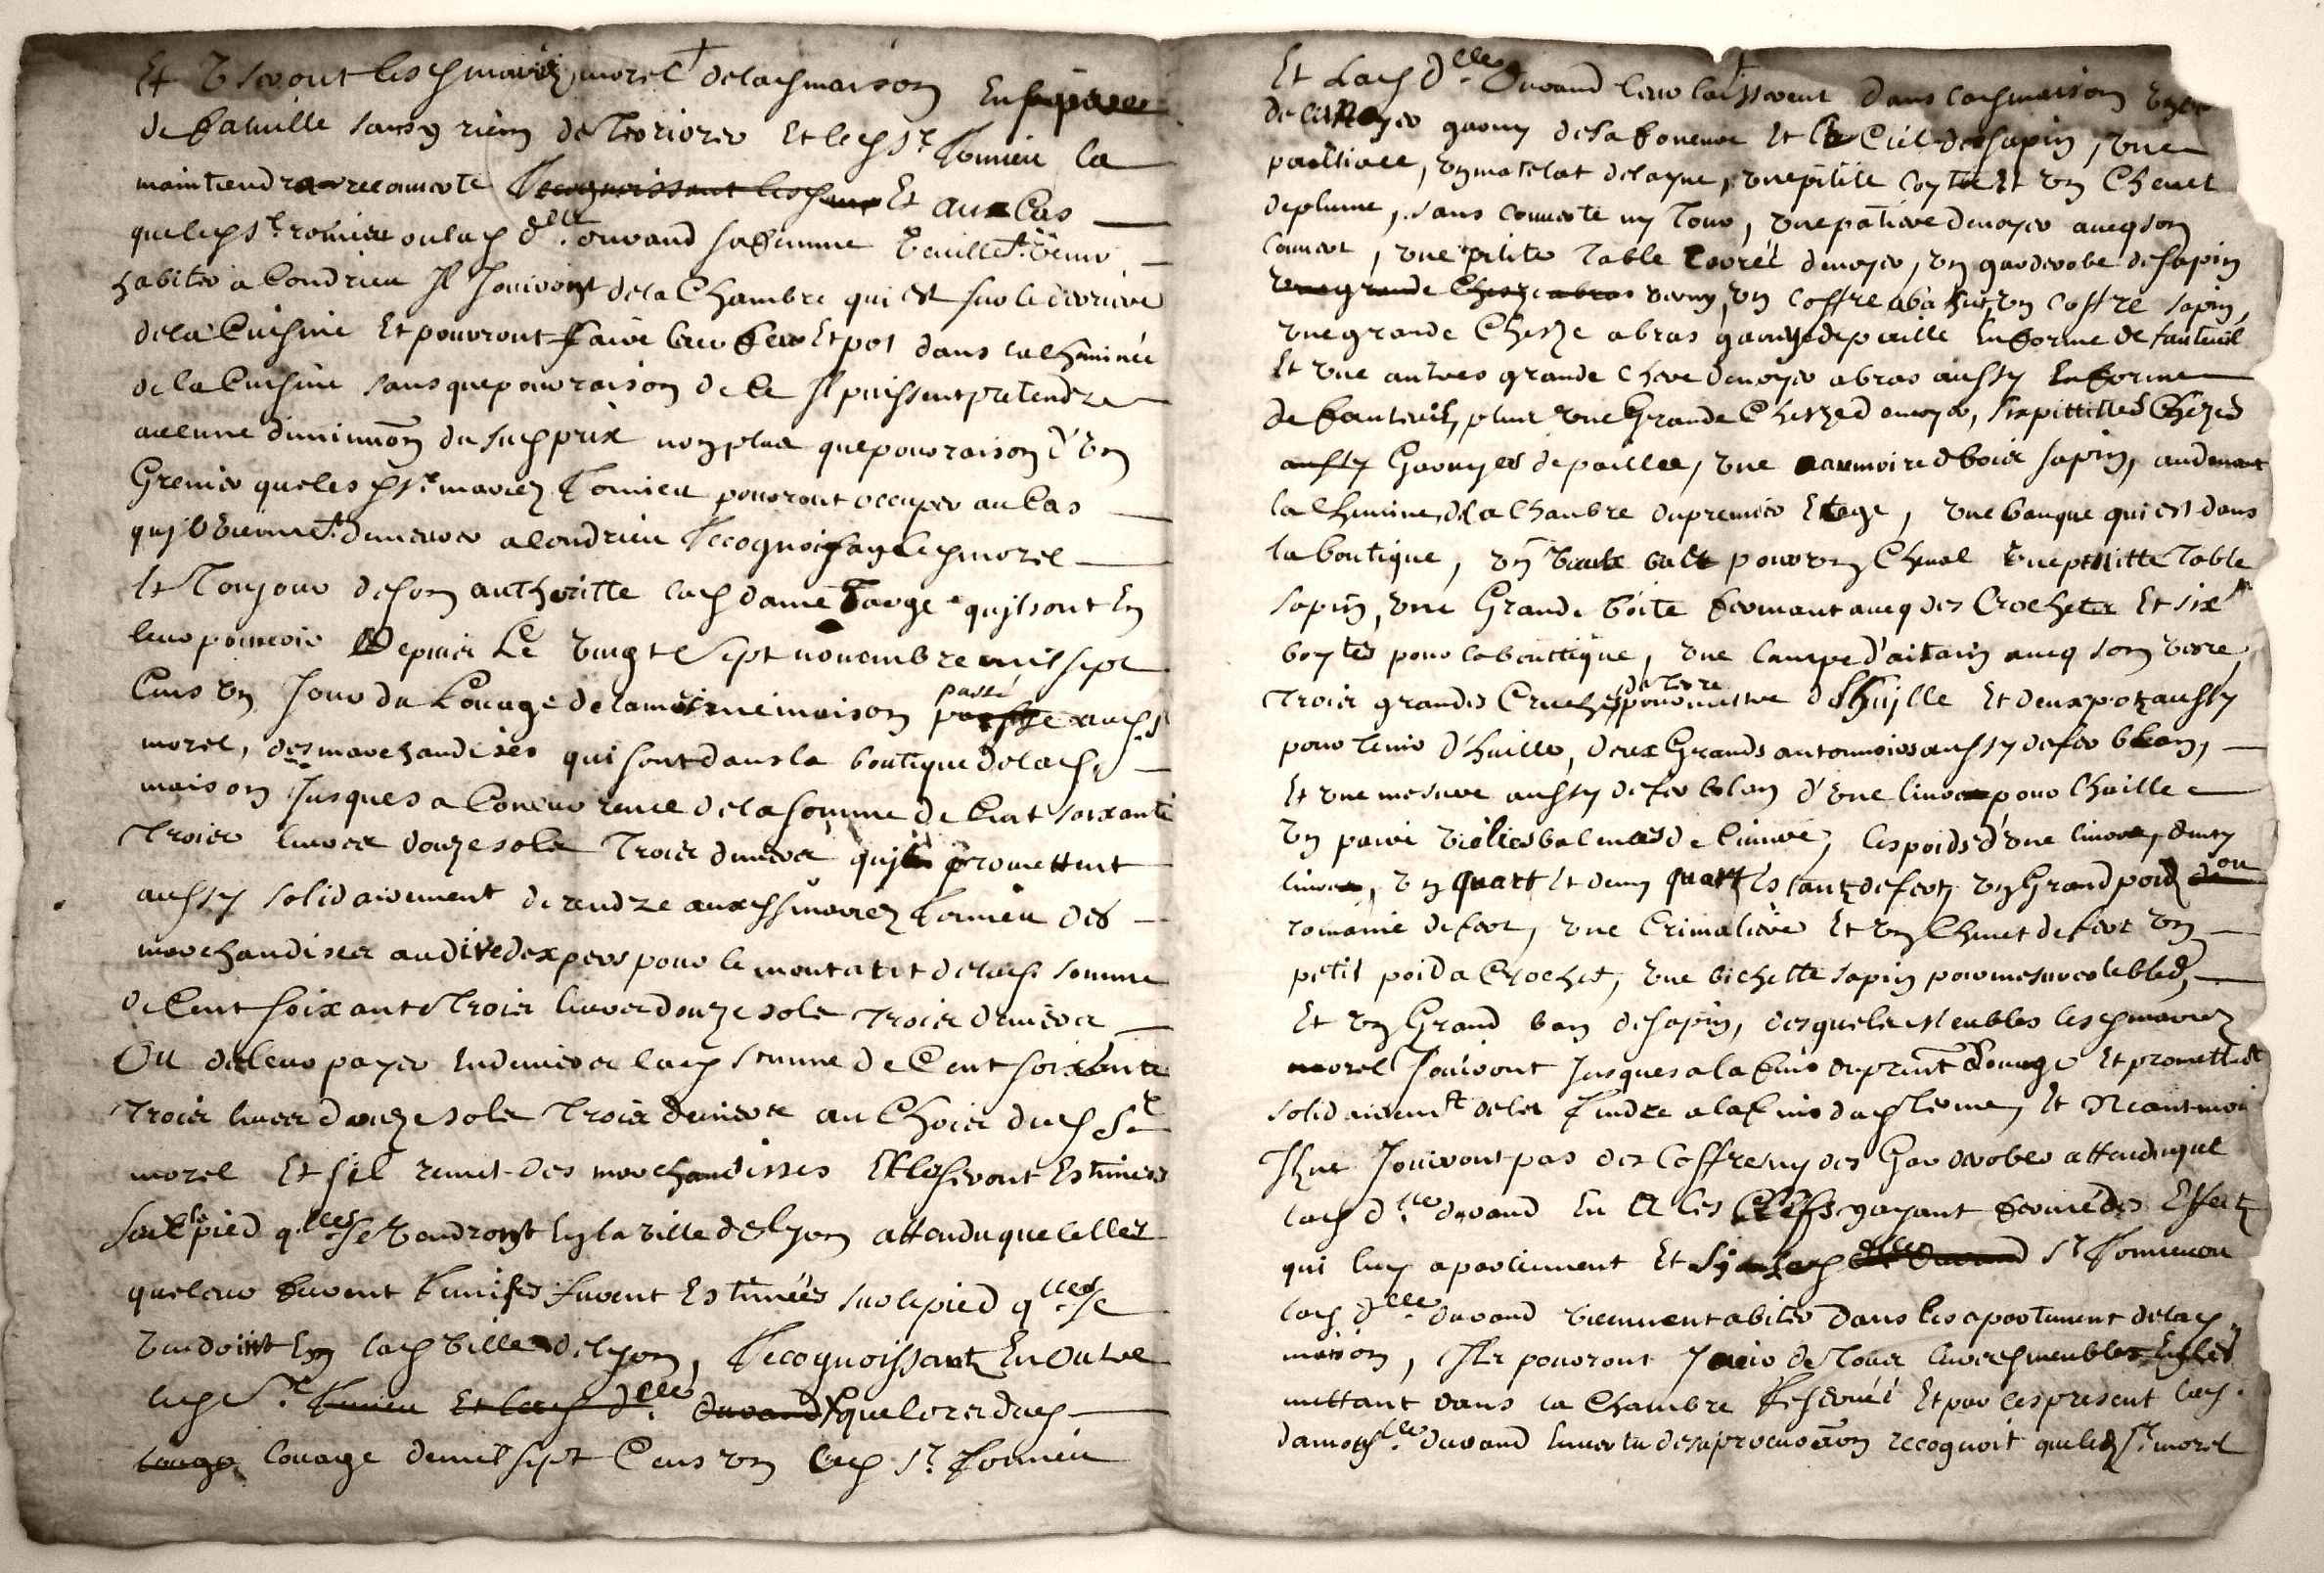 Et useront lesd mariez morel de lad maison En pere
de famille sans y rien deteriorer Et led Sr Romieu la
maintiendra recouverte Recognoissant lesd Et au Cas
que led Sr romieu ou lad dlle durand sa femme veuillet venir
habiter a Condrieu Il Jouiront de la Chambre qui est sur le derriere
de la Cuisine Et pourront faire leur feu Et pot dans la Cheminée
de la Cuisine sans que pour raison de Ce Il puissent pretendre
aucune diminuon du sud prix non plus que pour raison d'un
Grenier que lesd mariez Romieu pourront occuper au Cas
quil viennet demeurer a Condrieu Recognoissant lesd morel
Et Toujour de son authoritte lad dame qu'ils ont En
leur pouvoir Depuis Le vingt Sept novembre mil sept
Cens un Jour du Louage de la mesme maison passé aud Sr
morel, des marchandises qui sont dans la boutique de lad
maison Jusques a Concurrence de la somme de Cent soixante
Trois livres douze sols Trois deniers qu'ils promettent
aussy solidairement de rendre auxd mariez Romieu des
marchandises a dire dexpers pour le montant de lad somme
de Cent soixante Trois livres douze sols Trois deniers
Ou de leur payer En deniers lad somme de Cent soixante
Trois livres douze sols Trois deniers au Choix dud Sr
morel Et s'il remet des marchandisses Elles seront Estimées
sur le pied qlles se vendront En la ville de lyon attendu que celles
que leur furent remises furent Estimées sur le pied qlles se
vendoint En lad ville de lyon, Recognoissant En Outre
led Sr Romieu Et lad dlle durand que lors dud
louage louage de mil sept Cens un led Sr Romieu
Et Lad dlle Durand leur laisserent dans lad maison
de noyer garny de sa Et le Ciel de sapin, une
pailliace, un matelat de layne, une petite Coytre Et un Chevet
de plume, sans couverte ny Tour, une patiere de noyer avecq son
Couvert, une petite Table Carrée de noyer, un garderobe de sapin
une grande Cheize a bras verny, un Coffre un Coffre sapin,
une grande Cheize a bras garnye de paille En forme de fauteuil
Et une autres grande Chere de noyer a bras aussy En forme
de fauteuil, plus une Grande Cheize de noyer, six pittittes Cheizes
aussy Garnyes de pailles, une armoire de bois sapin, au devant
la Cheminee de la Chambre du premier Etage, une banque qui est dans
la boutique, un batt pour un Cheval une petitte Table
sapin, une Grande boite fermant avecq des Crochets Et six
boytes pour la bouttique, une lampe d'airain avecq son verre,
Trois grandes Cruches de Terre pour mettre de lhuille Et deux pot aussy
pour Tenir d'huille, deux Grands antonnoirs aussy de fer blan,
Et une mesure aussy de fer blan d'une livre pour lhuille
un paire vielies balances de Cuivre, les poids d'une livre, demy
livre, un quart Et demy quart Estant de fert, un Grand poid ou
romaine de fert, une Crimaliere Et un Chenet de fert un
petit poid a Crochet, une bichette sapin pour mesurer le bled,
Et un Grand ban de sapin, desquels Meubles lesd mariez
morel Jouiront Jusques a la fin du prnt Louage Et promettent
solidairemt de les Rendre a la fin dud Terme, Et Neantmoins
Il ne Jouiront pas des Coffre ny des Garderobes attendu que
lad dlle durand En a les Clefs y ayant fermé des Effetz
qui luy apartienent Et Sy led dlle Durand Sr Romieu ou
lad dlle durand viennent abiter dans les apartement de lad
maison, Ils pourront Jouir de Tous leursd meubles En les
mettant dans la Chambre Reservée Et par les present lad
damoislle durand En vertu de sa procuraon recognoit que led Sr morel